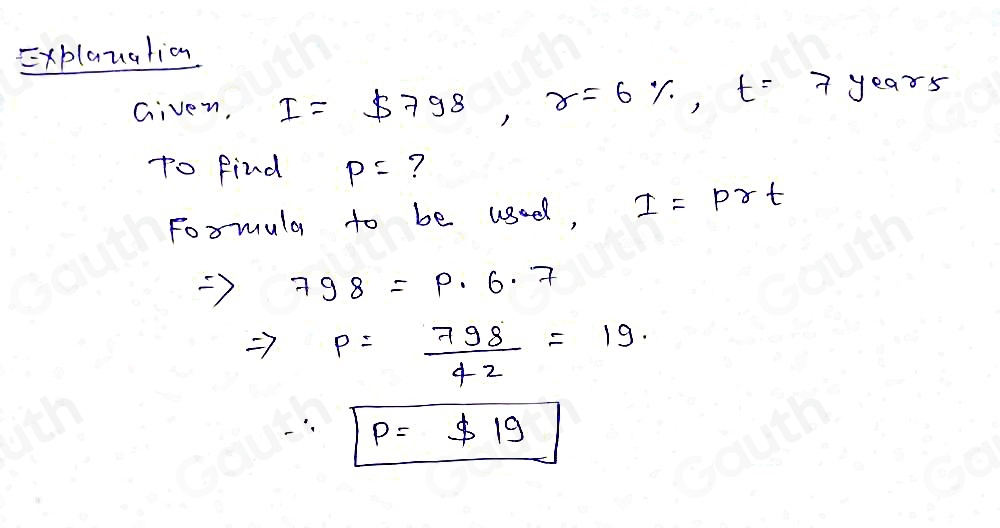 Explanation
Given, I = $798, r = 6%, t = 7 years
To find P = ?
Formula to be used, I = prt
=> 798 = P. 6. 7
=> P = 798/42 = 19.
∴ P = $19